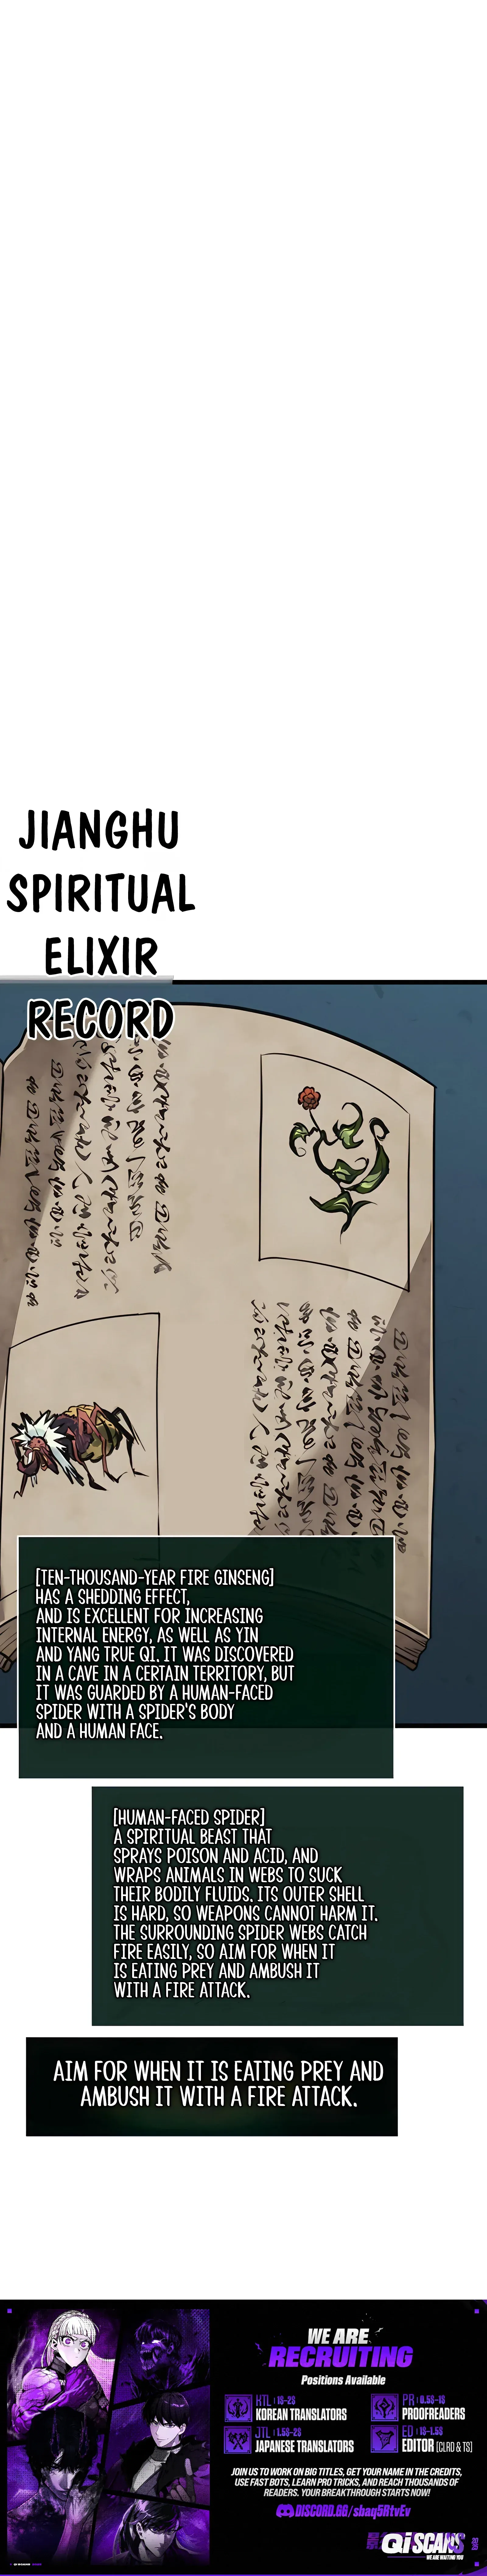 JIANGHU
SPIRITUAL
ELIXIR
RECORD
[TEN-THOUSAND-YEAR FIRE GINSENG]
HAS A SHEDDING EFFECT,
AND IS EXCELLENT FOR INCREASING
INTERNAL ENERGY, AS WELL AS YIN
AND YANG TRUE QI. IT WAS DISCOVERED
IN A CAVE IN A CERTAIN TERRITORY, BUT
IT WAS GUARDED BY A HUMAN-FACED
SPIDER WITH A SPIDER'S BODY
AND A HUMAN FACE.
[HUMAN-FACED SPIDER]
A SPIRITUAL BEAST THAT
SPRAYS POISON AND ACID, AND
WRAPS ANIMALS IN WEBS TO SUCK
THEIR BODILY FLUIDS. ITS OUTER SHELL
IS HARD, SO WEAPONS CANNOT HARM IT.
THE SURROUNDING SPIDER WEBS CATCH
FIRE EASILY, SO AIM FOR WHEN IT
IS EATING PREY AND AMBUSH IT
WITH A FIRE ATTACK.
AIM FOR WHEN IT IS EATING PREY AND
AMBUSH IT WITH A FIRE ATTACK.
WE ARE
RECRUITING
Positions Available
KTL | 1$-2$
KOREAN TRANSLATORS
PR | 0.5$-1$
PROOFREADERS
JTL | 1.5$-2$
JAPANESE TRANSLATORS
ED | 1$-1.5$
EDITOR [CLRD & TS]
JOIN US TO WORK ON BIG TITLES, GET YOUR NAME IN THE CREDITS,
USE FAST BOTS, LEARN PRO TRICKS, AND REACH THOUSANDS OF
READERS. YOUR BREAKTHROUGH STARTS NOW!
DISCORD.GG/sbaq5RtvEv
Qi SCANS
WE ARE WAITING YOU